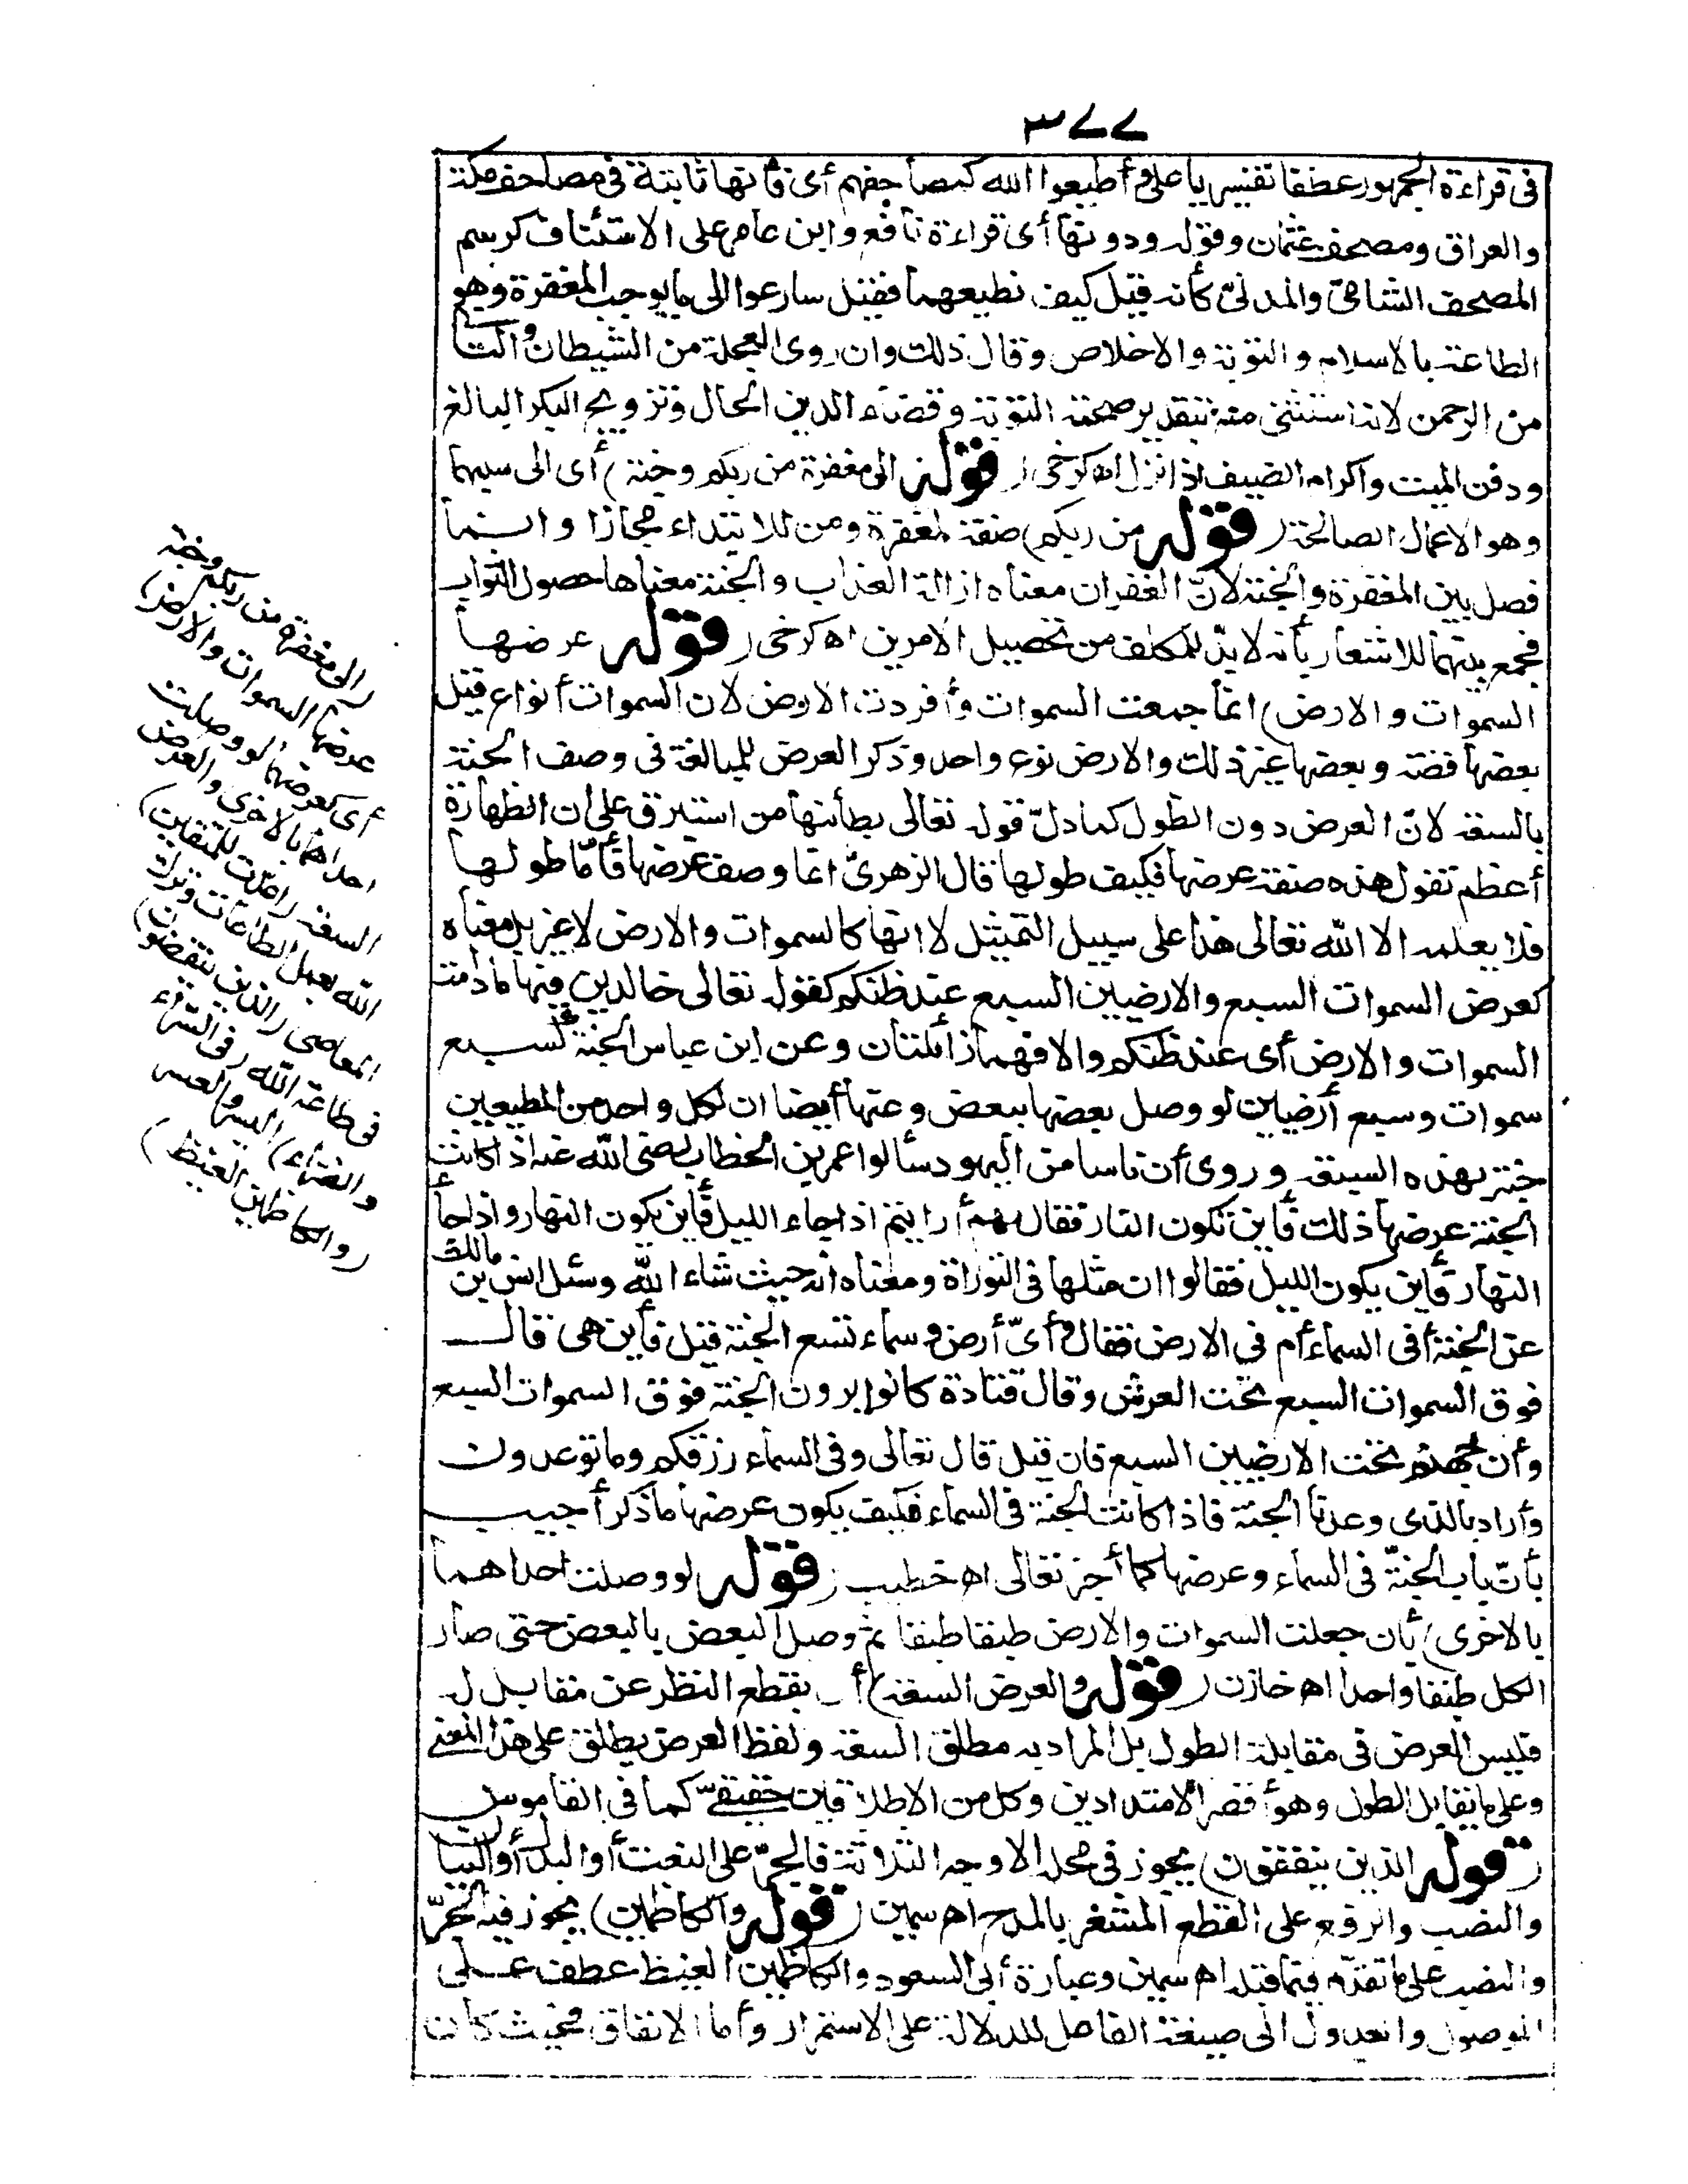 ٣٧٧
فى قراءة الجمهور عطفا تفسيريا على وأطيعوا الله كمصاحفهم أى فأنها ثابتة فى مصاحف مكة
والعراق ومصحف عثمان وقوله ودونها أى قراءة نافع وابن عامر على الاستئناف كرسم
المصحف الشامىّ والمدنىّ كأنه قيل كيف نطيعهما فقيل سارعوا الى ما يوجب المغفرة وهو
الطاعة بالاسلام والتوبة والاخلاص وقال ذلك وان روى العجلة من الشيطان والتأ
من الرحمن لانه استثنى منه بتقدير صحته التوبة وقضاء الدين الحال وتزويج البكر البالغ
ودفن الميت واكرام الضيف اذا نزل اه كرخى (قوله الى مغفرة من ربكم وجنة) أى الى سببهما
وهو الاعمال الصالحة (قوله من ربكم) صفة لمغفرة ومن للابتداء مجازا وانما
فصل بين المغفرة والجنة لانّ الغفران معناه ازالة العذاب والجنة معناها حصول الثواب
فجمع بينهما للاشعار بأنه لابدّ للمكلف من تحصيل الامرين اه كرخى (قوله عرضها
السموات والارض) انما جمعت السموات وأفردت الارض لان السموات أنواع قيل
بعضها فضة وبعضها غير ذلك والارض نوع واحد وذكر العرض للمبالغة فى وصف الجنة
بالسعة لانّ العرض دون الطول كما دلّ قوله تعالى بطائنها من استبرق على ان الظهارة
أعظم تقول هذه صفة عرضها فكيف طولها قال الزهرىّ انما وصف عرضها فأمّا طولها
فلا يعلمه الا الله تعالى هذا على سبيل التمثيل لا انها كالسموات والارض لا غير بل معناه
كعرض السموات السبع والارضين السبع عند ظنكم كقوله تعالى خالدين فيها ما دامت
السموات والارض أى عند ظنكم والا فهما زائلتان وعن ابن عباس الجنة كسبع
سموات وسبع أرضين لو وصل بعضها ببعض وعنها أيضا ان لكل واحد من المطيعين
جنة بهذه السعة وروى أن ناسا من اليهود سألوا عمر بن الخطاب رضى الله عنه اذا كانت
الجنة عرضها ذلك فأين تكون النار فقال لهم أرايتم اذا جاء الليل فأين يكون النهار واذا جاء
النهار فأين يكون الليل فقالوا ان مثلها فى التوراة ومعناه انه حيث شاء الله وسئل انس بن مالك
عن الجنة أفى السماء أم فى الارض فقال وأىّ أرض وسماء تسع الجنة قيل فأين هى قال
فوق السموات السبع تحت العرش وقال قتادة كانوا يرون الجنة فوق السموات السبع
وأن جهنم تحت الارضين السبع فان قيل قال تعالى وفى السماء رزقكم وما توعدون
وأراد بالذى وعدنا الجنة فاذا كانت الجنة فى السماء فكيف يكون عرضها ما ذكر أجيب
بأنّ باب الجنة فى السماء وعرضها كما أخبر تعالى اه خطيب (قوله لو وصلت احداهما
بالاخرى) بأن جعلت السموات والارض طبقا طبقا ثم وصل البعض بالبعض حتى صار
الكل طبقا واحدا اه خازن (قوله والعرض السعة) أى بقطع النظر عن مقابل له
فليس العرض فى مقابلة الطول بل المراد به مطلق السعة ولفظ العرض يطلق على هذا المعنى
وعلى ما يقابل الطول وهو أقصر الامتدادين وكل من الاطلاقين حقيقىّ كما فى القاموس
(قوله الذين ينفقون) يجوز فى محله الاوجه الثلاثة فالجرّ على النعت أو البدل أو البيان
والنصب والرفع على القطع المشعر بالمدح اه سمين (قوله والكاظمين) يجوز فيه الجرّ
والنصب على ما تقدّم فيما قبله اه سمين وعبارة أبى السعود والكاظمين الغيظ عطف على
الموصول والعدول الى صيغة الفاعل للدلالة على الاستمرار وأما الانفاق فحيث كان
(الى مغفرة من ربكم وجنة
عرضها السموات والارض)
أى كعرضها لو وصلت
احداهما بالاخرى والعرض
السعة (أعدّت للمتقين)
الله بعمل الطاعات وترك
المعاصى (الذين ينفقون)
فى طاعة الله (فى السراء
والضراء) اليسر والعسر
(والكاظمين الغيظ)